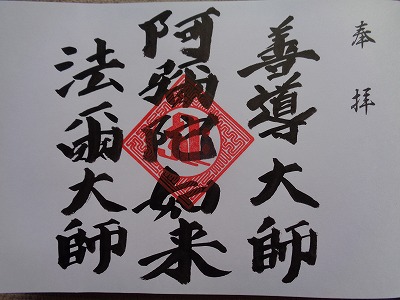 奉拝
善導大師
阿彌陀如来
法爾大師